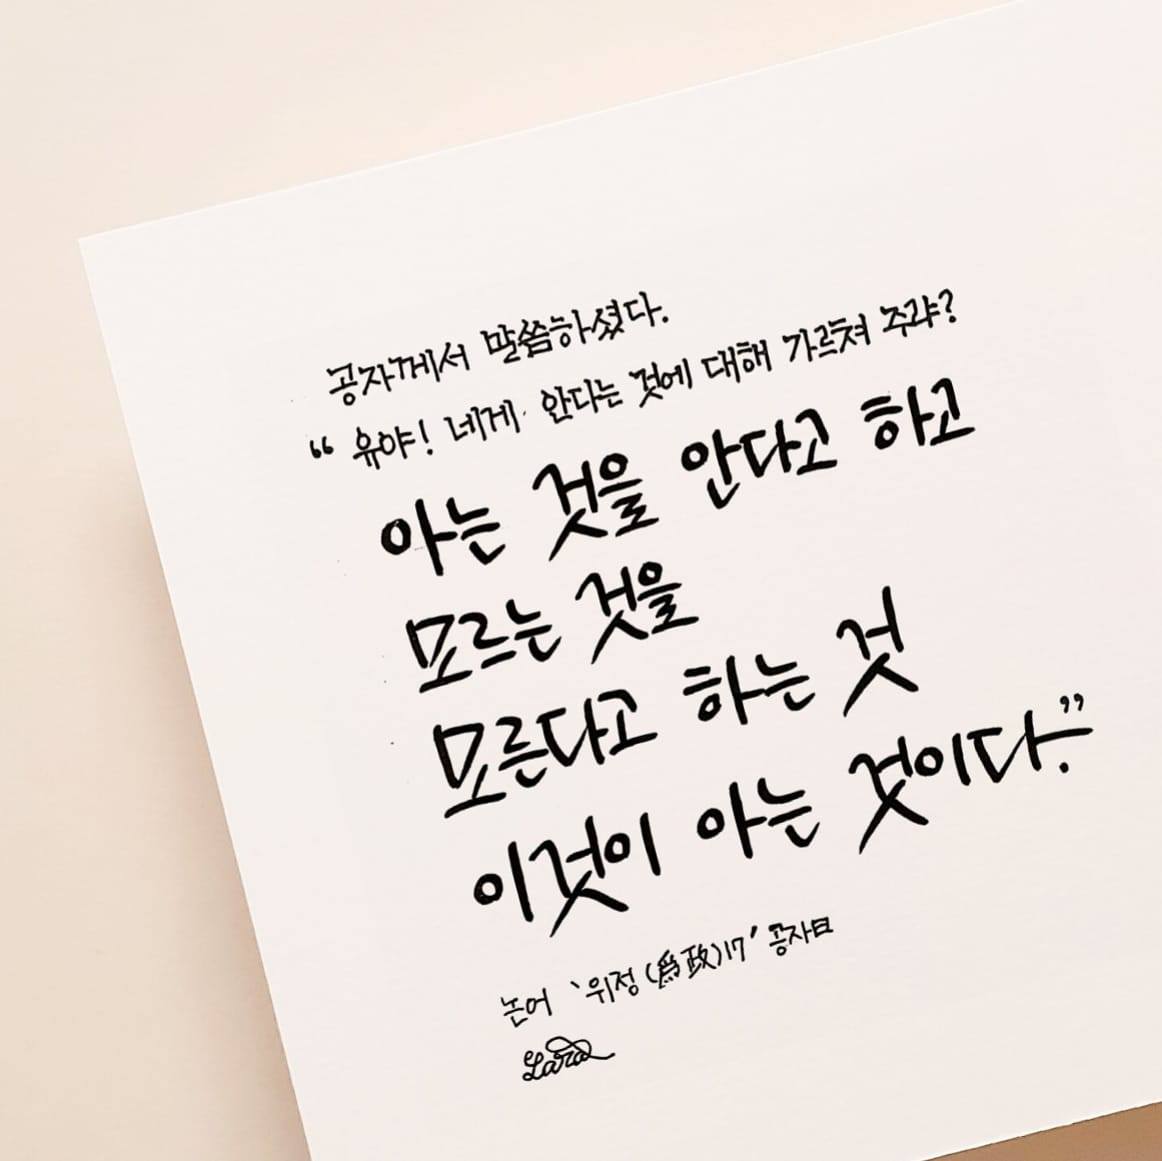 공자께서 말씀하셨다.
“유야! 네게 안다는 것에 대해 가르쳐 주랴?
아는 것을 안다고 하고
모르는 것을
모른다고 하는 것
이것이 아는 것이다.”
논어 ‘위정(爲政)17’ 공자曰
Lara